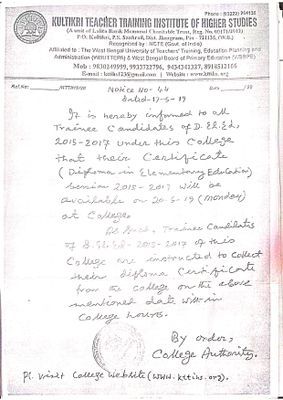 Phone : (03221) 254135
KULTIKRI TEACHER TRAINING INSTITUTE OF HIGHER STUDIES
(A unit of Lalita Barik Memorial Charitable Trust, Reg. No.
P.O. Kultikri, P.S. Sankrail, Dist. Jhargram, Pin - 721135, (W.B.)
Recognised by : NCTE (Govt. of India)
Affiliated to : The West Bengal University of Teachers' Training, Education Planning and
Administration (WBUTTEPA) & West Bengal Board of Primary Education (WBBPE)
Mob : 9830249999, 9933722796, 9434341337, 8918512166
E-mail : | Website :
Ref. No. Date
Notice No- 44
dated-17-5-19
It is hereby informed to all
Trainee Candidates of D.El.Ed.
2015-2017 under this College
that their Certificate
(Diploma in Elementary Education)
Session 2015-2017 will be
available on 20-5-19 (Monday)
at College.
Trainee Candidates
of D.El.Ed-2015-2017 of this
College are instructed to collect
their diploma Certificate
from the college on the above
mentioned date with-in
College hours.
By order,
College Authority.
Pl. visit College Website (www.kttihs.org).